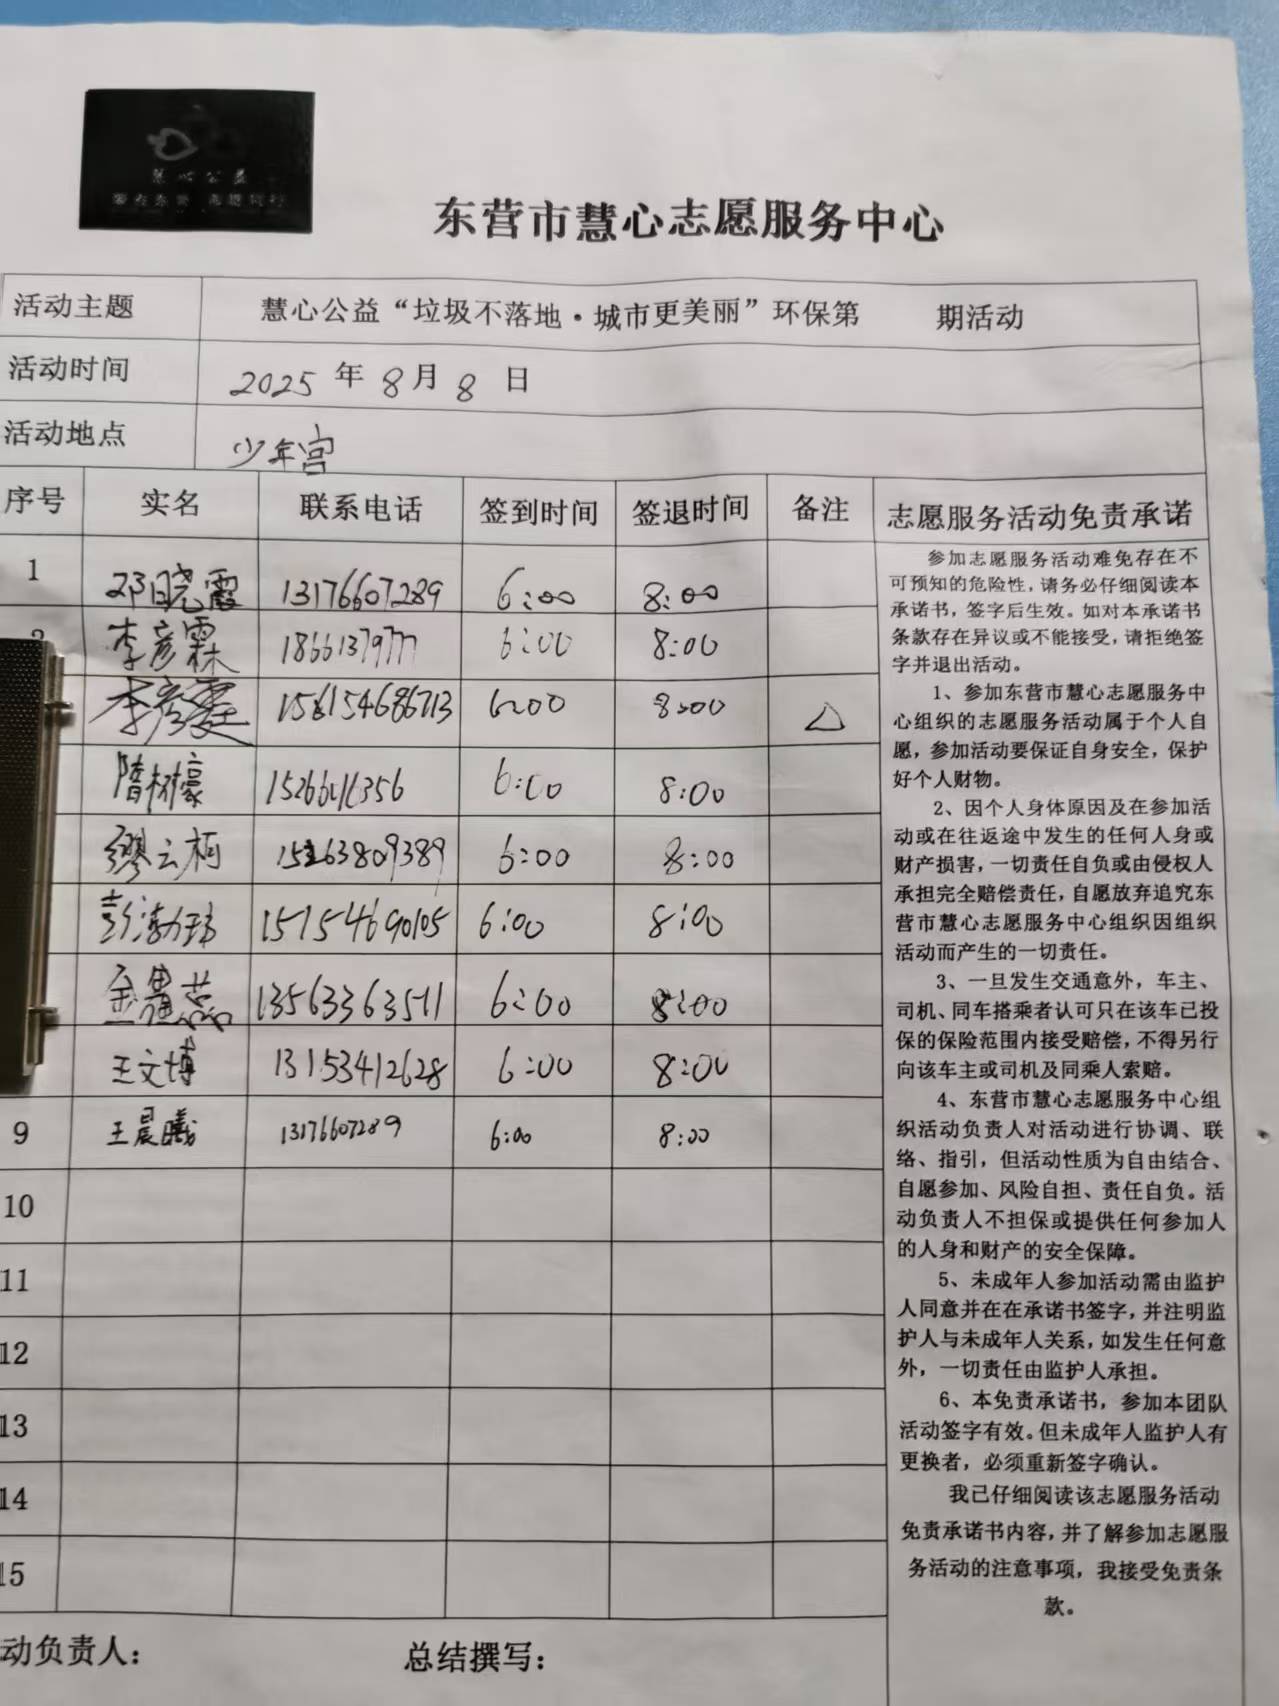 慧心公益
东营市慧心志愿服务中心
活动主题 慧心公益“垃圾不落地·城市更美丽”环保第 期活动
活动时间 2025 年 8 月 8 日
活动地点 少年宫
序号 实名 联系电话 签到时间 签退时间 备注 志愿服务活动免责承诺
1 邓晓霞 13176607289 6:00 8:00
李彦霖 6:00 8:00
李彦霆 6:00 8:00 △
隋树檬 6:00 8:00
缪云柯 15263809389 6:00 8:00
彭渤玮 15754690105 6:00 8:00
金 蕊 13563363511 6:00 8:00
王文博 13153412628 6:00 8:00
9 王晨曦 13176607289 6:00 8:00
10
11
12
13
14
15
参加志愿服务活动难免存在不
可预知的危险性，请务必仔细阅读本
承诺书，签字后生效。如对本承诺书
条款存在异议或不能接受，请拒绝签
字并退出活动。
1、参加东营市慧心志愿服务中
心组织的志愿服务活动属于个人自
愿，参加活动要保证自身安全，保护
好个人财物。
2、因个人身体原因及在参加活
动或在往返途中发生的任何人身或
财产损害，一切责任自负或由侵权人
承担完全赔偿责任，自愿放弃追究东
营市慧心志愿服务中心组织因组织
活动而产生的一切责任。
3、一旦发生交通意外，车主、
司机、同车搭乘者认可只在该车已投
保的保险范围内接受赔偿，不得另行
向该车主或司机及同乘人索赔。
4、东营市慧心志愿服务中心组
织活动负责人对活动进行协调、联
络、指引，但活动性质为自由结合、
自愿参加、风险自担、责任自负。活
动负责人不担保或提供任何参加人
的人身和财产的安全保障。
5、未成年人参加活动需由监护
人同意并在在承诺书签字，并注明监
护人与未成年人关系，如发生任何意
外，一切责任由监护人承担。
6、本免责承诺书，参加本团队
活动签字有效。但未成年人监护人有
更换者，必须重新签字确认。
我已仔细阅读该志愿服务活动
免责承诺书内容，并了解参加志愿服
务活动的注意事项，我接受免责条
款。
动负责人： 总结撰写：